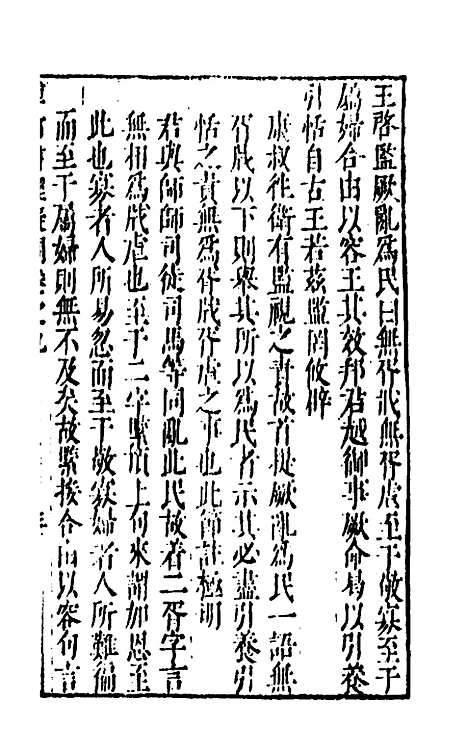 王啓監厥亂爲民曰無胥戕無胥虐至于敬寡至于
屬婦合由以容王其效邦君越御事厥命曷以引養
引恬自古王若茲監罔攸辟
康叔往衛有監視之責故首提厥亂爲民一語無
胥戕以下則舉其所以爲民者示其必盡引養引
恬之責無爲胥戕胥虐之事也此節註極明
君與師師司徒司馬等同亂此民故着二胥字言
無相爲戕虐也至于二字緊頂上句來謂加恩至
此也寡者人所易忽而至于敬寡婦者人所難徧
而至于屬婦則無不及矣故緊接合由以容句言